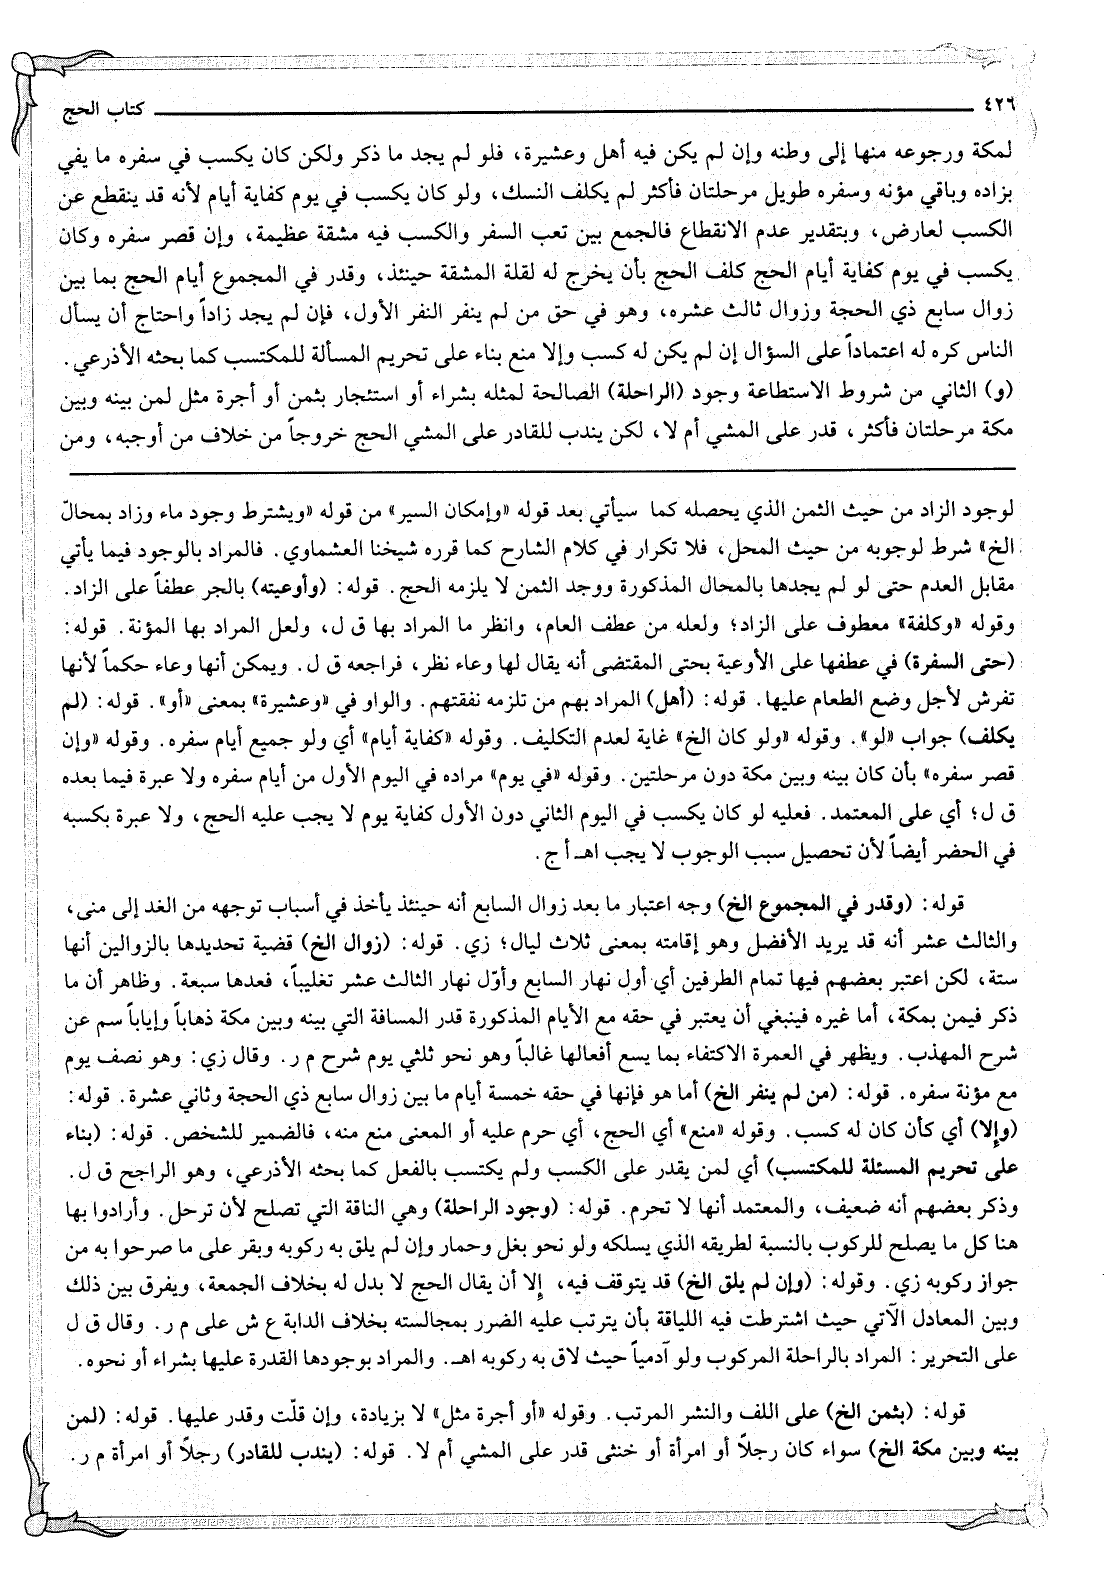 ٤٢٦
كتاب الحج
لمكة ورجوعه منها إلى وطنه وإن لم يكن فيه أهل وعشيرة، فلو لم يجد ما ذكر ولكن كان يكسب في سفره ما يفي
بزاده وباقي مؤنه وسفره طويل مرحلتان فأكثر لم يكلف النسك، ولو كان يكسب في يوم كفاية أيام لأنه قد ينقطع عن
الكسب لعارض، وبتقدير عدم الانقطاع فالجمع بين تعب السفر والكسب فيه مشقة عظيمة، وإن قصر سفره وكان
يكسب في يوم كفاية أيام الحج كلف الحج بأن يخرج له لقلة المشقة حينئذ، وقدر في المجموع أيام الحج بما بين
زوال سابع ذي الحجة وزوال ثالث عشره، وهو في حق من لم ينفر النفر الأول، فإن لم يجد زاداً واحتاج أن يسأل
الناس كره له اعتماداً على السؤال إن لم يكن له كسب وإلا منع بناء على تحريم المسألة للمكتسب كما بحثه الأذرعي.
(و) الثاني من شروط الاستطاعة وجود (الراحلة) الصالحة لمثله بشراء أو استئجار بثمن أو أجرة مثل لمن بينه وبين
مكة مرحلتان فأكثر، قدر على المشي أم لا، لكن يندب للقادر على المشي الحج خروجاً من خلاف من أوجبه، ومن
لوجود الزاد من حيث الثمن الذي يحصله كما سيأتي بعد قوله «وإمكان السير» من قوله «ويشترط وجود ماء وزاد بمحالّ
الخ» شرط لوجوبه من حيث المحل، فلا تكرار في كلام الشارح كما قرره شيخنا العشماوي. فالمراد بالوجود فيما يأتي
مقابل العدم حتى لو لم يجدها بالمحال المذكورة ووجد الثمن لا يلزمه الحج. قوله: (وأوعيته) بالجر عطفاً على الزاد.
وقوله «وكلفة» معطوف على الزاد؛ ولعله من عطف العام، وانظر ما المراد بها ق ل، ولعل المراد بها المؤنة. قوله:
(حتى السفرة) في عطفها على الأوعية بحتى المقتضى أنه يقال لها وعاء نظر، فراجعه ق ل. ويمكن أنها وعاء حكماً لأنها
تفرش لأجل وضع الطعام عليها. قوله: (أهل) المراد بهم من تلزمه نفقتهم. والواو في «وعشيرة» بمعنى «أو». قوله: (لم
يكلف) جواب «لو». وقوله «ولو كان الخ» غاية لعدم التكليف. وقوله «كفاية أيام» أي ولو جميع أيام سفره. وقوله «وإن
قصر سفره» بأن كان بينه وبين مكة دون مرحلتين. وقوله «في يوم» مراده في اليوم الأول من أيام سفره ولا عبرة فيما بعده
ق ل؛ أي على المعتمد. فعليه لو كان يكسب في اليوم الثاني دون الأول كفاية يوم لا يجب عليه الحج، ولا عبرة بكسبه
في الحضر أيضاً لأن تحصيل سبب الوجوب لا يجب اهـ أ ج.
قوله: (وقدر في المجموع الخ) وجه اعتبار ما بعد زوال السابع أنه حينئذ يأخذ في أسباب توجهه من الغد إلى منى،
والثالث عشر أنه قد يريد الأفضل وهو إقامته بمعنى ثلاث ليال؛ زي. قوله: (زوال الخ) قضية تحديدها بالزوالين أنها
ستة، لكن اعتبر بعضهم فيها تمام الطرفين أي أول نهار السابع وأوّل نهار الثالث عشر تغليباً، فعدها سبعة. وظاهر أن ما
ذكر فيمن بمكة، أما غيره فينبغي أن يعتبر في حقه مع الأيام المذكورة قدر المسافة التي بينه وبين مكة ذهاباً وإياباً سم عن
شرح المهذب. ويظهر في العمرة الاكتفاء بما يسع أفعالها غالباً وهو نحو ثلثي يوم شرح م ر. وقال زي: وهو نصف يوم
مع مؤنة سفره. قوله: (من لم ينفر الخ) أما هو فإنها في حقه خمسة أيام ما بين زوال سابع ذي الحجة وثاني عشرة. قوله:
(وإلا) أي كأن كان له كسب. وقوله «منع» أي الحج، أي حرم عليه أو المعنى منع منه، فالضمير للشخص. قوله: (بناء
على تحريم المسئلة للمكتسب) أي لمن يقدر على الكسب ولم يكتسب بالفعل كما بحثه الأذرعي، وهو الراجح ق ل.
وذكر بعضهم أنه ضعيف، والمعتمد أنها لا تحرم. قوله: (وجود الراحلة) وهي الناقة التي تصلح لأن ترحل. وأرادوا بها
هنا كل ما يصلح للركوب بالنسبة لطريقه الذي يسلكه ولو نحو بغل وحمار وإن لم يلق به ركوبه وبقر على ما صرحوا به من
جواز ركوبه زي. وقوله: (وإن لم يلق الخ) قد يتوقف فيه، إلا أن يقال الحج لا بدل له بخلاف الجمعة، ويفرق بين ذلك
وبين المعادل الآتي حيث اشترطت فيه اللياقة بأن يترتب عليه الضرر بمجالسته بخلاف الدابة ع ش على م ر. وقال ق ل
على التحرير: المراد بالراحلة المركوب ولو آدمياً حيث لاق به ركوبه اهـ. والمراد بوجودها القدرة عليها بشراء أو نحوه.
قوله: (بثمن الخ) على اللف والنشر المرتب. وقوله «أو أجرة مثل» لا بزيادة، وإن قلّت وقدر عليها. قوله: (لمن
بينه وبين مكة الخ) سواء كان رجلاً أو امرأة أو خنثى قدر على المشي أم لا. قوله: (يندب للقادر) رجلاً أو امرأة م ر.